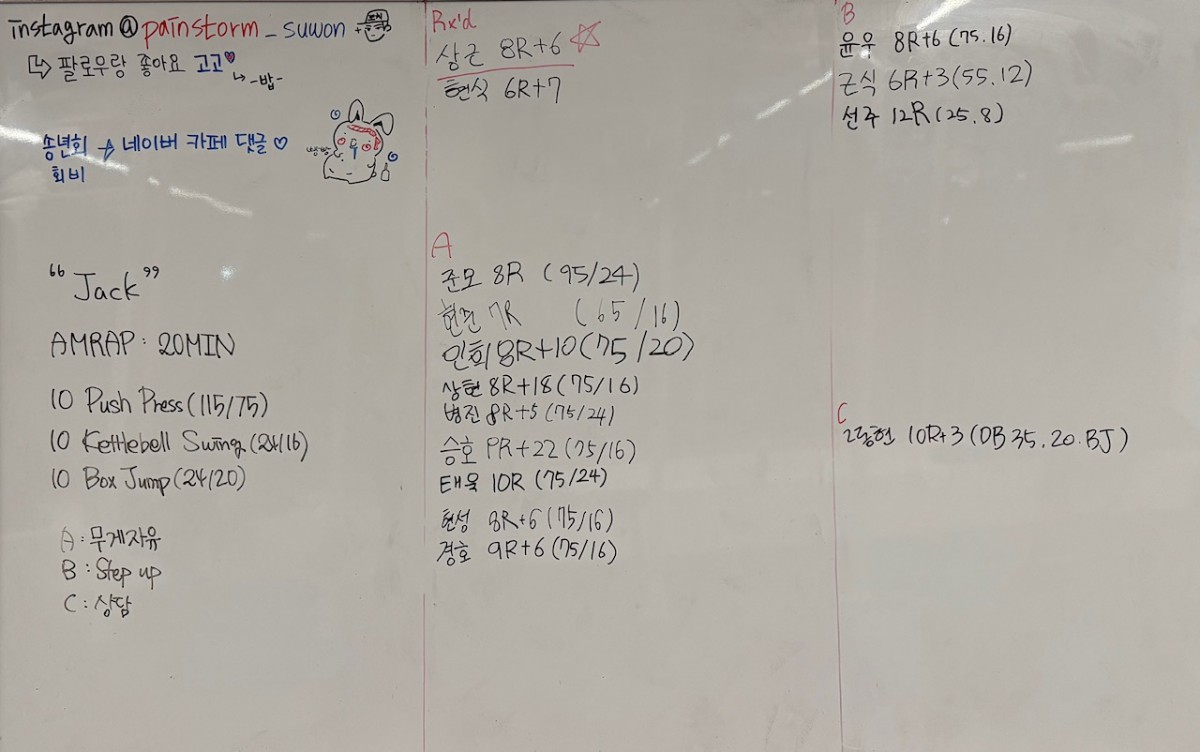 instagram@painstorm_suwon
↳ 팔로우랑 좋아요 고고♥
↳ -밥-
송년회 → 네이버 카페 댓글 ♡
회비
"Jack"
AMRAP : 20MIN
10 Push Press (115/75)
10 Kettlebell Swing (24/16)
10 Box Jump (24/20)
A : 무게자유
B : Step up
C : 상담
Rx'd
상근 8R+6 ☆
현식 6R+7
A
준모 8R (95/24)
현진 7R (65/16)
인회 8R+10 (75/20)
상현 8R+18 (75/16)
병진 8R+5 (75/24)
승호 9R+22 (75/16)
태욱 10R (75/24)
현성 8R+6 (75/16)
경호 9R+6 (75/16)
B
윤우 8R+6 (75.16)
근식 6R+3 (55.12)
선주 12R (25.8)
C
10R+3 (DB 35.20.BJ)